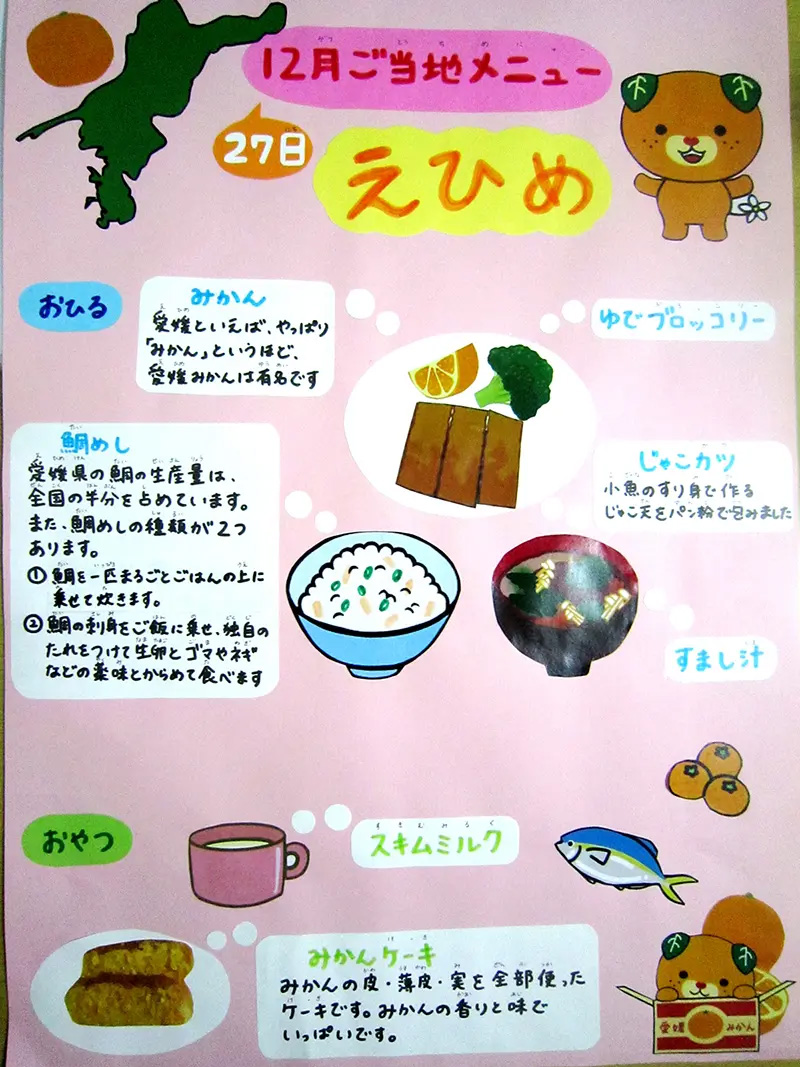 12月ご当地メニュー
27日
えひめ
おひる
みかん
愛媛といえば、やっぱり
「みかん」というほど、
愛媛みかんは有名です
ゆでブロッコリー
鯛めし
愛媛県の鯛の生産量は、
全国の半分を占めています。
また、鯛めしの種類が2つ
あります。
①鯛を一匹まるごとごはんの上に
乗せて炊きます。
②鯛の刺身をご飯に乗せ、独自の
たれをつけて生卵とゴマやネギ
などの薬味とからめて食べます
じゃこカツ
小魚のすり身で作る
じゃこ天をパン粉で包みました
すまし汁
おやつ
スキムミルク
みかんケーキ
みかんの皮・薄皮・実を全部使った
ケーキです。みかんの香りと味で
いっぱいです。
愛媛 みかん